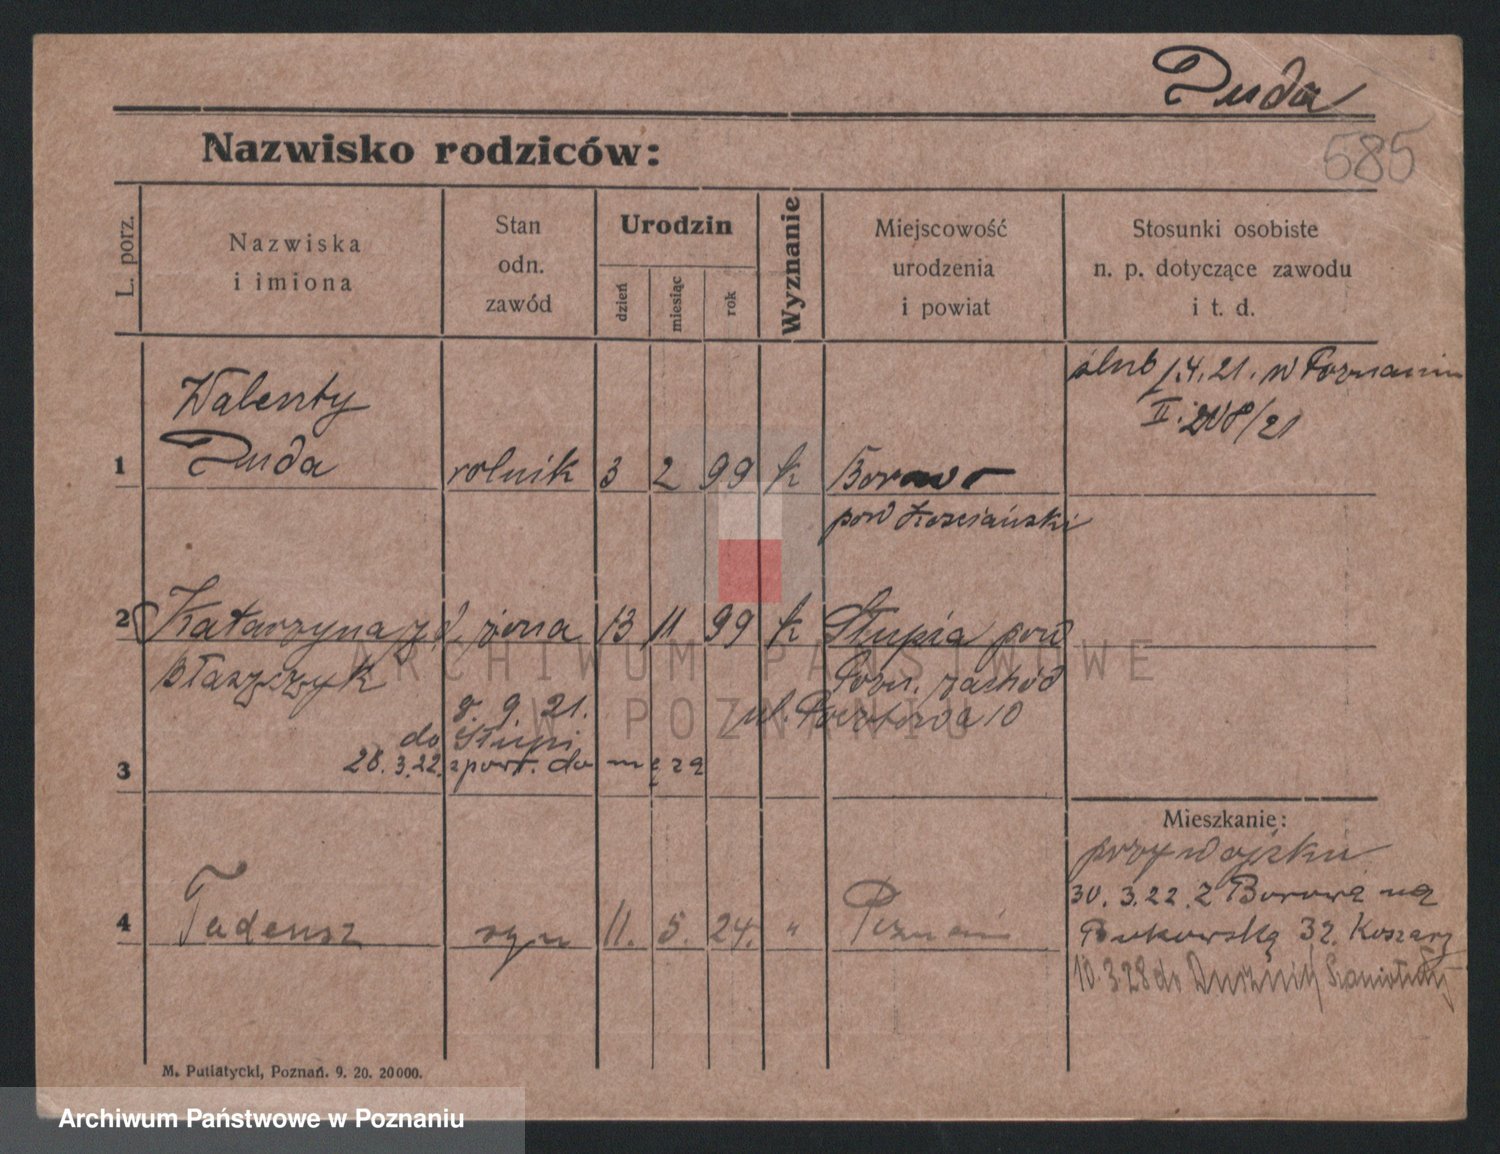 Duda
585
Nazwisko rodziców:
L. porz.
Nazwiska
i imiona
Stan
odn.
zawód
Urodzin
dzień
miesiąc
rok
Wyznanie
Miejscowość
urodzenia
i powiat
Stosunki osobiste
n. p. dotyczące zawodu
i t. d.
ślub 1.4.21. w Poznaniu
II. 208/21
Walenty
1 Duda rolnik 3 2 99 k Borowo
pow Kościański
2 Katarzyna z d. żona 13 11 99 k Słupia pow
Błaszczyk Pozn. zachód
8. 9. 21. ul. Pocztowa 10
do Słupi
3 28.3.22. z powr. do męża
Mieszkanie:
przy wojsku
30. 3. 22. z Borowa na
4 Tadeusz syn 11. 5. 24. " Poznań
Bukowską 32. Koszary
10.3.28 do
M. Putiatycki, Poznań. 9. 20. 20000.
ARCHIWUM PAŃSTWOWE
W POZNANIU
Archiwum Państwowe w Poznaniu